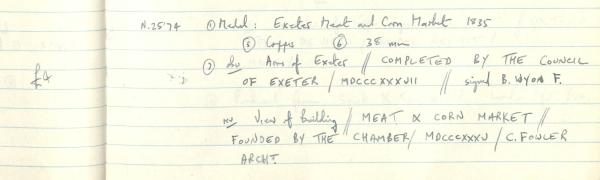 N.2574 ① Medal: Exeter Meat and Corn Market 1835
⑤ Copper ⑥ 38 mm
£4 ⑦ Arms of Exeter // COMPLETED BY THE COUNCIL
OF EXETER / MDCCCXXXVII // signed B. WYON F.
View of building // MEAT & CORN MARKET //
FOUNDED BY THE CHAMBER / MDCCCXXXV / C. FOWLER
ARCHT.